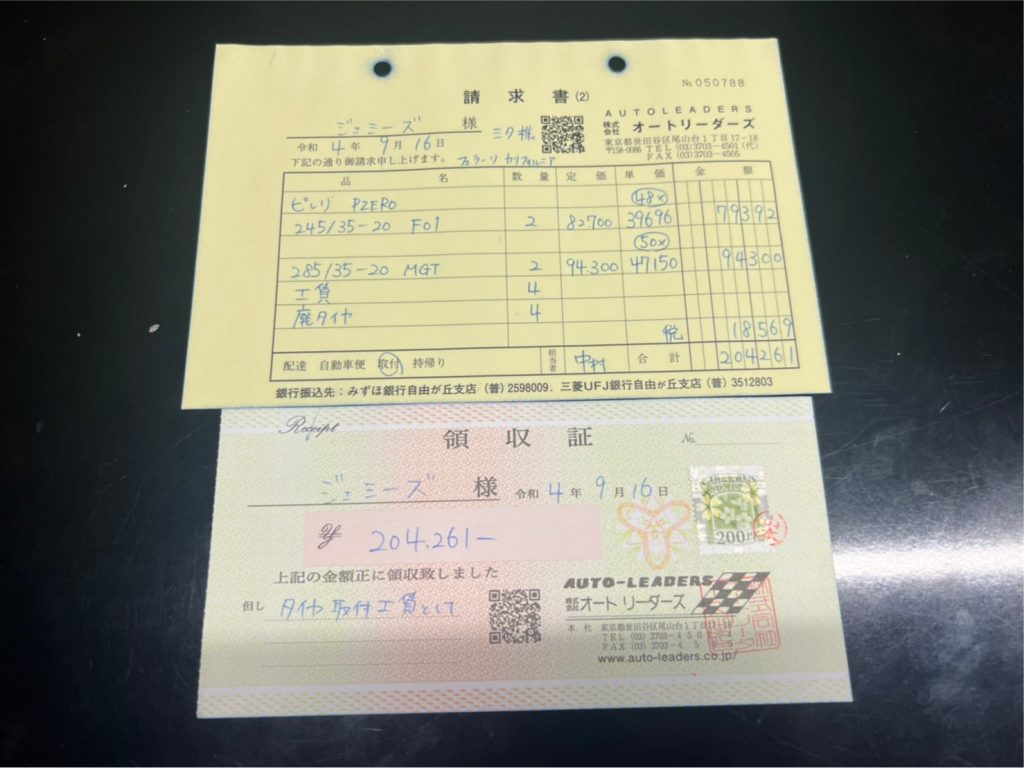 №050788
請求書(2)
AUTOLEADERS
株式会社 オートリーダーズ
東京都世田谷区尾山台1丁目17-18
〒158-0086 TEL (03)3703-4501 (代)
FAX (03)3703-4505
ジェミーズ 様 ミタ様
令和 4 年 9 月 16 日
下記の通り御請求申し上げます。
フェラーリ カリフォルニア
品名 数量 定価 単価 金額
ピレリ PZERO 48%
245/35-20 F01 2 82700 39696 79392
50%
285/35-20 MGT 2 94300 47150 94300
工賃 4
廃タイヤ 4
税 18569
配達 自動車便 取付 持帰り 担当者 中村 合計 204261
銀行振込先:みずほ銀行自由が丘支店 (普) 2598009. 三菱UFJ銀行自由が丘支店 (普) 3512803
Receipt
領収証
No.
ジェミーズ 様 令和 4 年 9 月 16 日
200円
¥ 204.261-
上記の金額正に領収致しました
但し タイヤ取付工賃として
AUTO-LEADERS
株式会社 オートリーダーズ
本社 東京都世田谷区尾山台1丁目17-18
TEL (03) 3703-450
FAX (03) 3703-45
www.auto-leaders.co.jp/